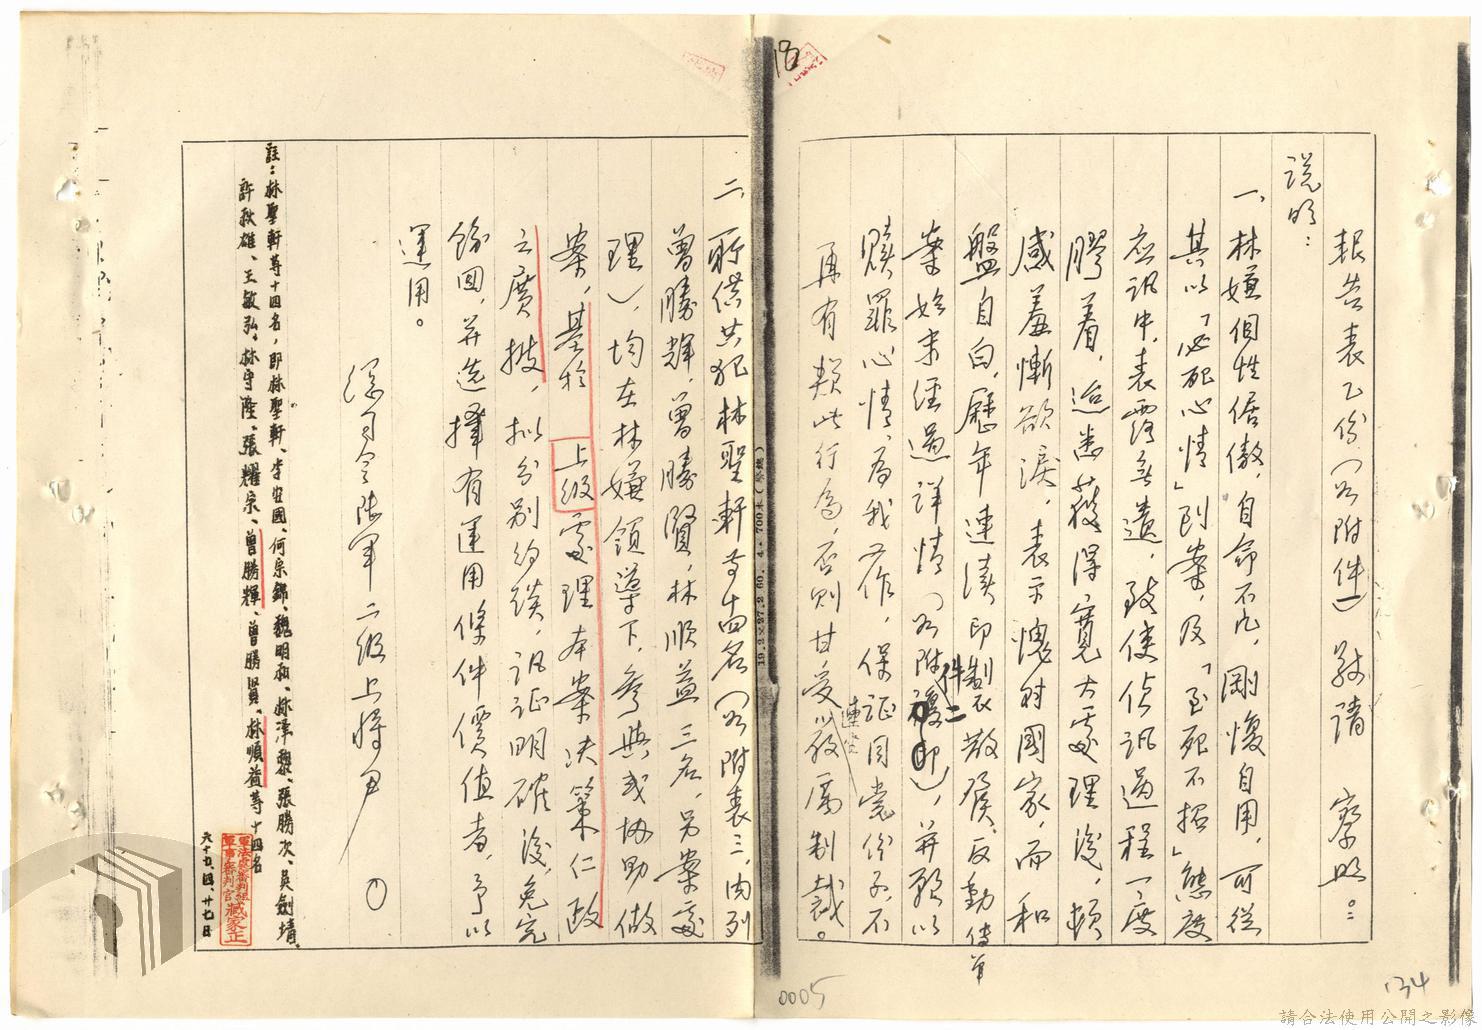 18
報告表乙份(如附件一)敬請 察照。:
說明:
一、林嫌個性倨傲,自命不凡,剛愎自用,可從
其以「必死心情」到案,及「至死不招」態度
應訊中,表露無遺,致使偵訊過程一度
膠着,迨悉獲得寬大處理後,頓
感羞慚欲淚,表示愧對國家,而和
盤自白,歷年連續印製散發反動傳單
案始末經過詳情(如附件二),并願以
贖罪心情,為我工作,保証同黨份子,不
再有類此行為,否則甘受嚴厲制裁。
二、所供共犯林聖軒等十四名(如附表三,內列
曾勝輝,曾勝賢,林順益三名,另案處
理),均在林嫌領導下,參與或協助做
案,基於 上級處理本案決策仁政
之廣披,擬分別約談,訊証明確後,免究
飭回,并選擇有運用條件價值者,予以
運用。
陸軍二級上將尹
註:林聖軒等十四名,即林聖軒、李安國、何宗錦、魏明和、林澤黎、張勝次、吳劍墳、
許秋雄、王敏弘、林守隆、張耀宗、曾勝輝、曾勝賢、林順益等十四名
軍法處審判組
軍事審判官臧家正
六十五、四、廿七日
19.2×27.2 60.4.700本(聚鎮)
0005
134
請合法使用公開之影像